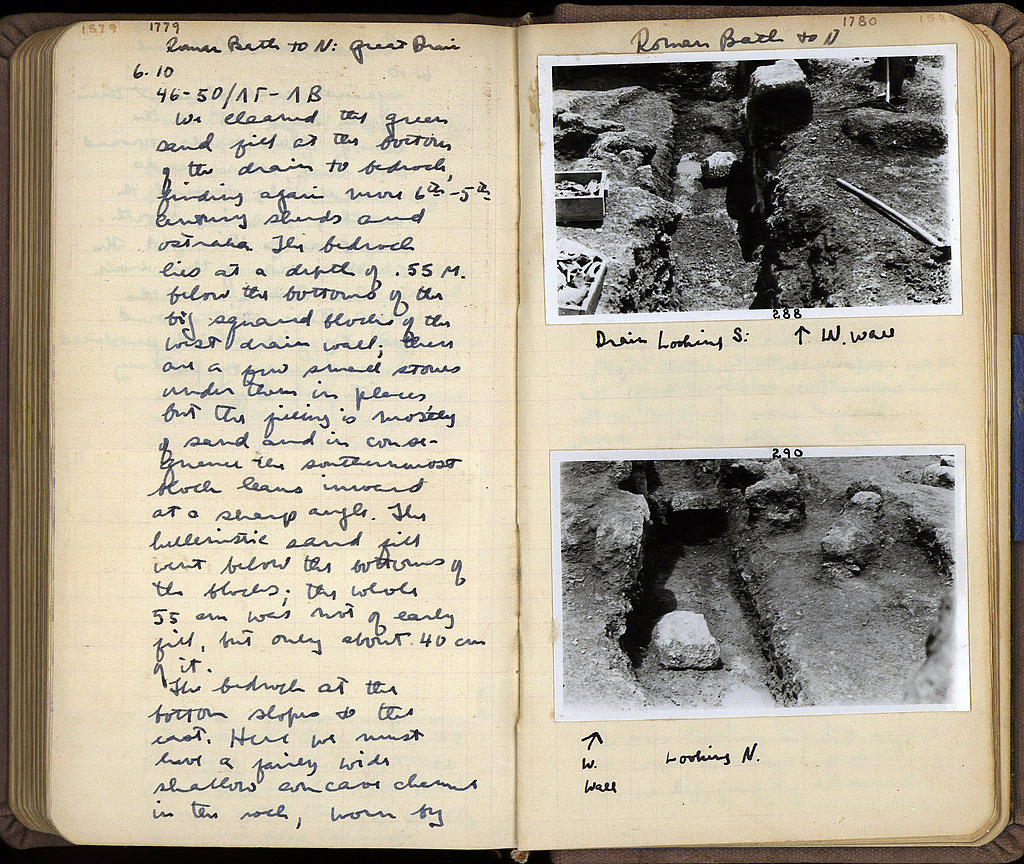 1579 1779
Roman Bath to N: Great Drain
6.10
46-50/ΛΓ-ΛΒ
We cleaned the green
sand fill at the bottom
of the drain to bedrock,
finding again more 6th-5th
century sherds and
ostraka. The bedrock
lies at a depth of .55 M.
below the bottoms of the
big squared blocks of the
west drain wall; there
are a few small stones
under them in places
but the filling is mostly
of sand and in conse-
quence the southernmost
block leans inward
at a sharp angle. The
hellenistic sand fill
went below the bottoms of
the blocks; the whole
55 cm was not of early
fill, but only about 40 cm
of it.
The bedrock at the
bottom slopes to the
east. Here we must
have a fairly wide
shallow concave channel
in the rock, worn by
1780 1580
Roman Bath to N
288
Drain Looking S: ↑ W. Wall
290
↑
W.
Wall
Looking N.